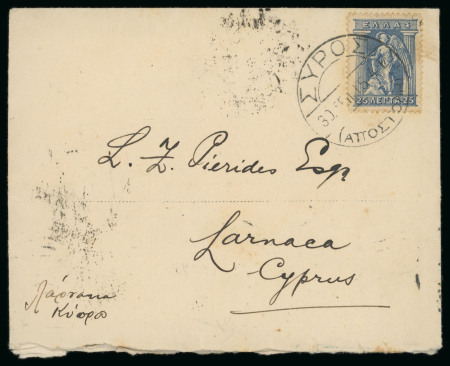 ΕΛΛΑΣ
25 ΛΕΠΤΑ 25
ΣΥΡΟΣ
(ΑΠΟΣΤ
L. Z. Pierides Esqr
Larnaca
Cyprus
Λάρνακα
Κύπρο